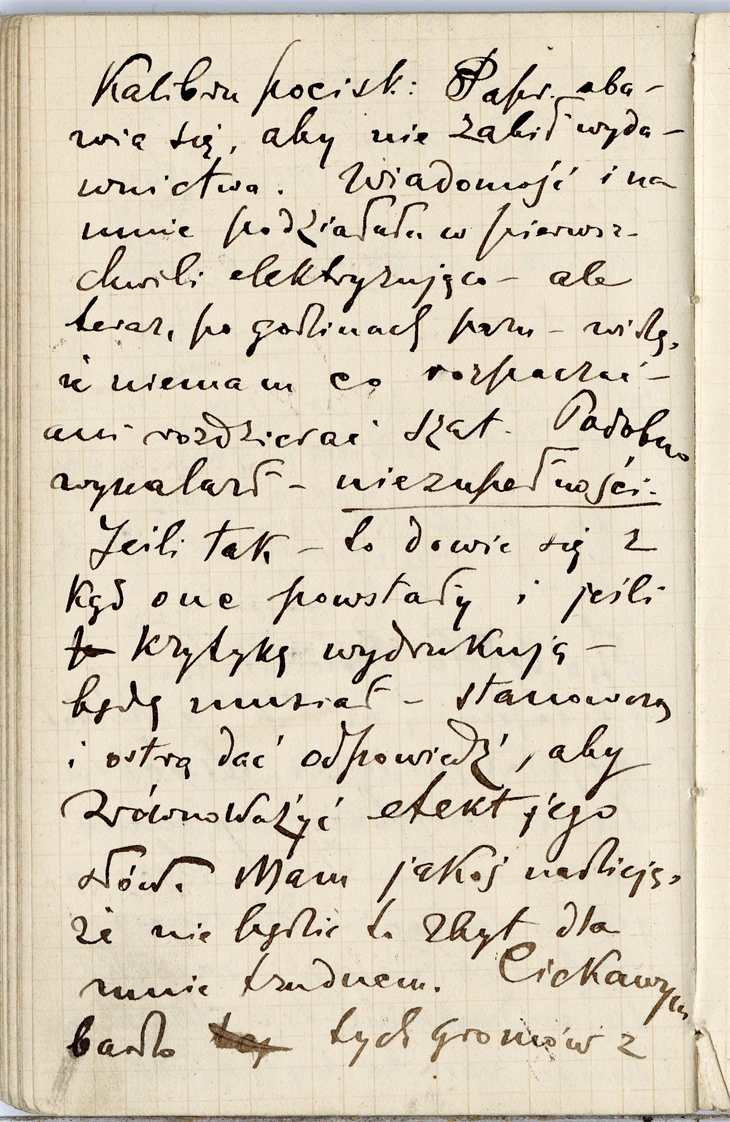 Kalibru pocisk: Papr. oba-
wia się, aby nie zabił wyda-
wnictwa. Wiadomość i na
mnie podziałała w pierwsz-
chwili elektryzująco - ale
teraz, po godzinach paru - widzę,
iż niemam co rozpaczać -
ani rozdzierać szat. Podobno
wynalazł - niezupełności.
Jeśli tak - to dowie się z
kąd one powstały i jeśli
krytykę wydrukują -
będę musiał - stanowczą
i ostrą dać odpowiedź, aby
zrównoważyć efekt jego
słów. Mam jakoś nadzieję,
że nie będzie to zbyt dla
mnie trudnem. Ciekawym
bardo tych gromów z